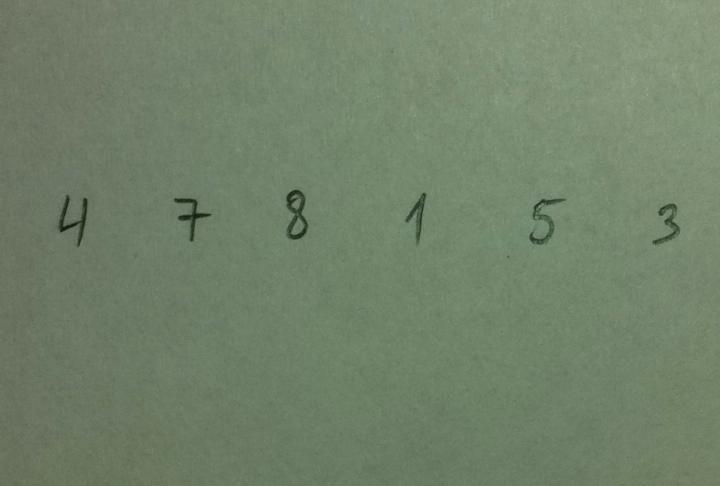 4 7 8 1 5 3